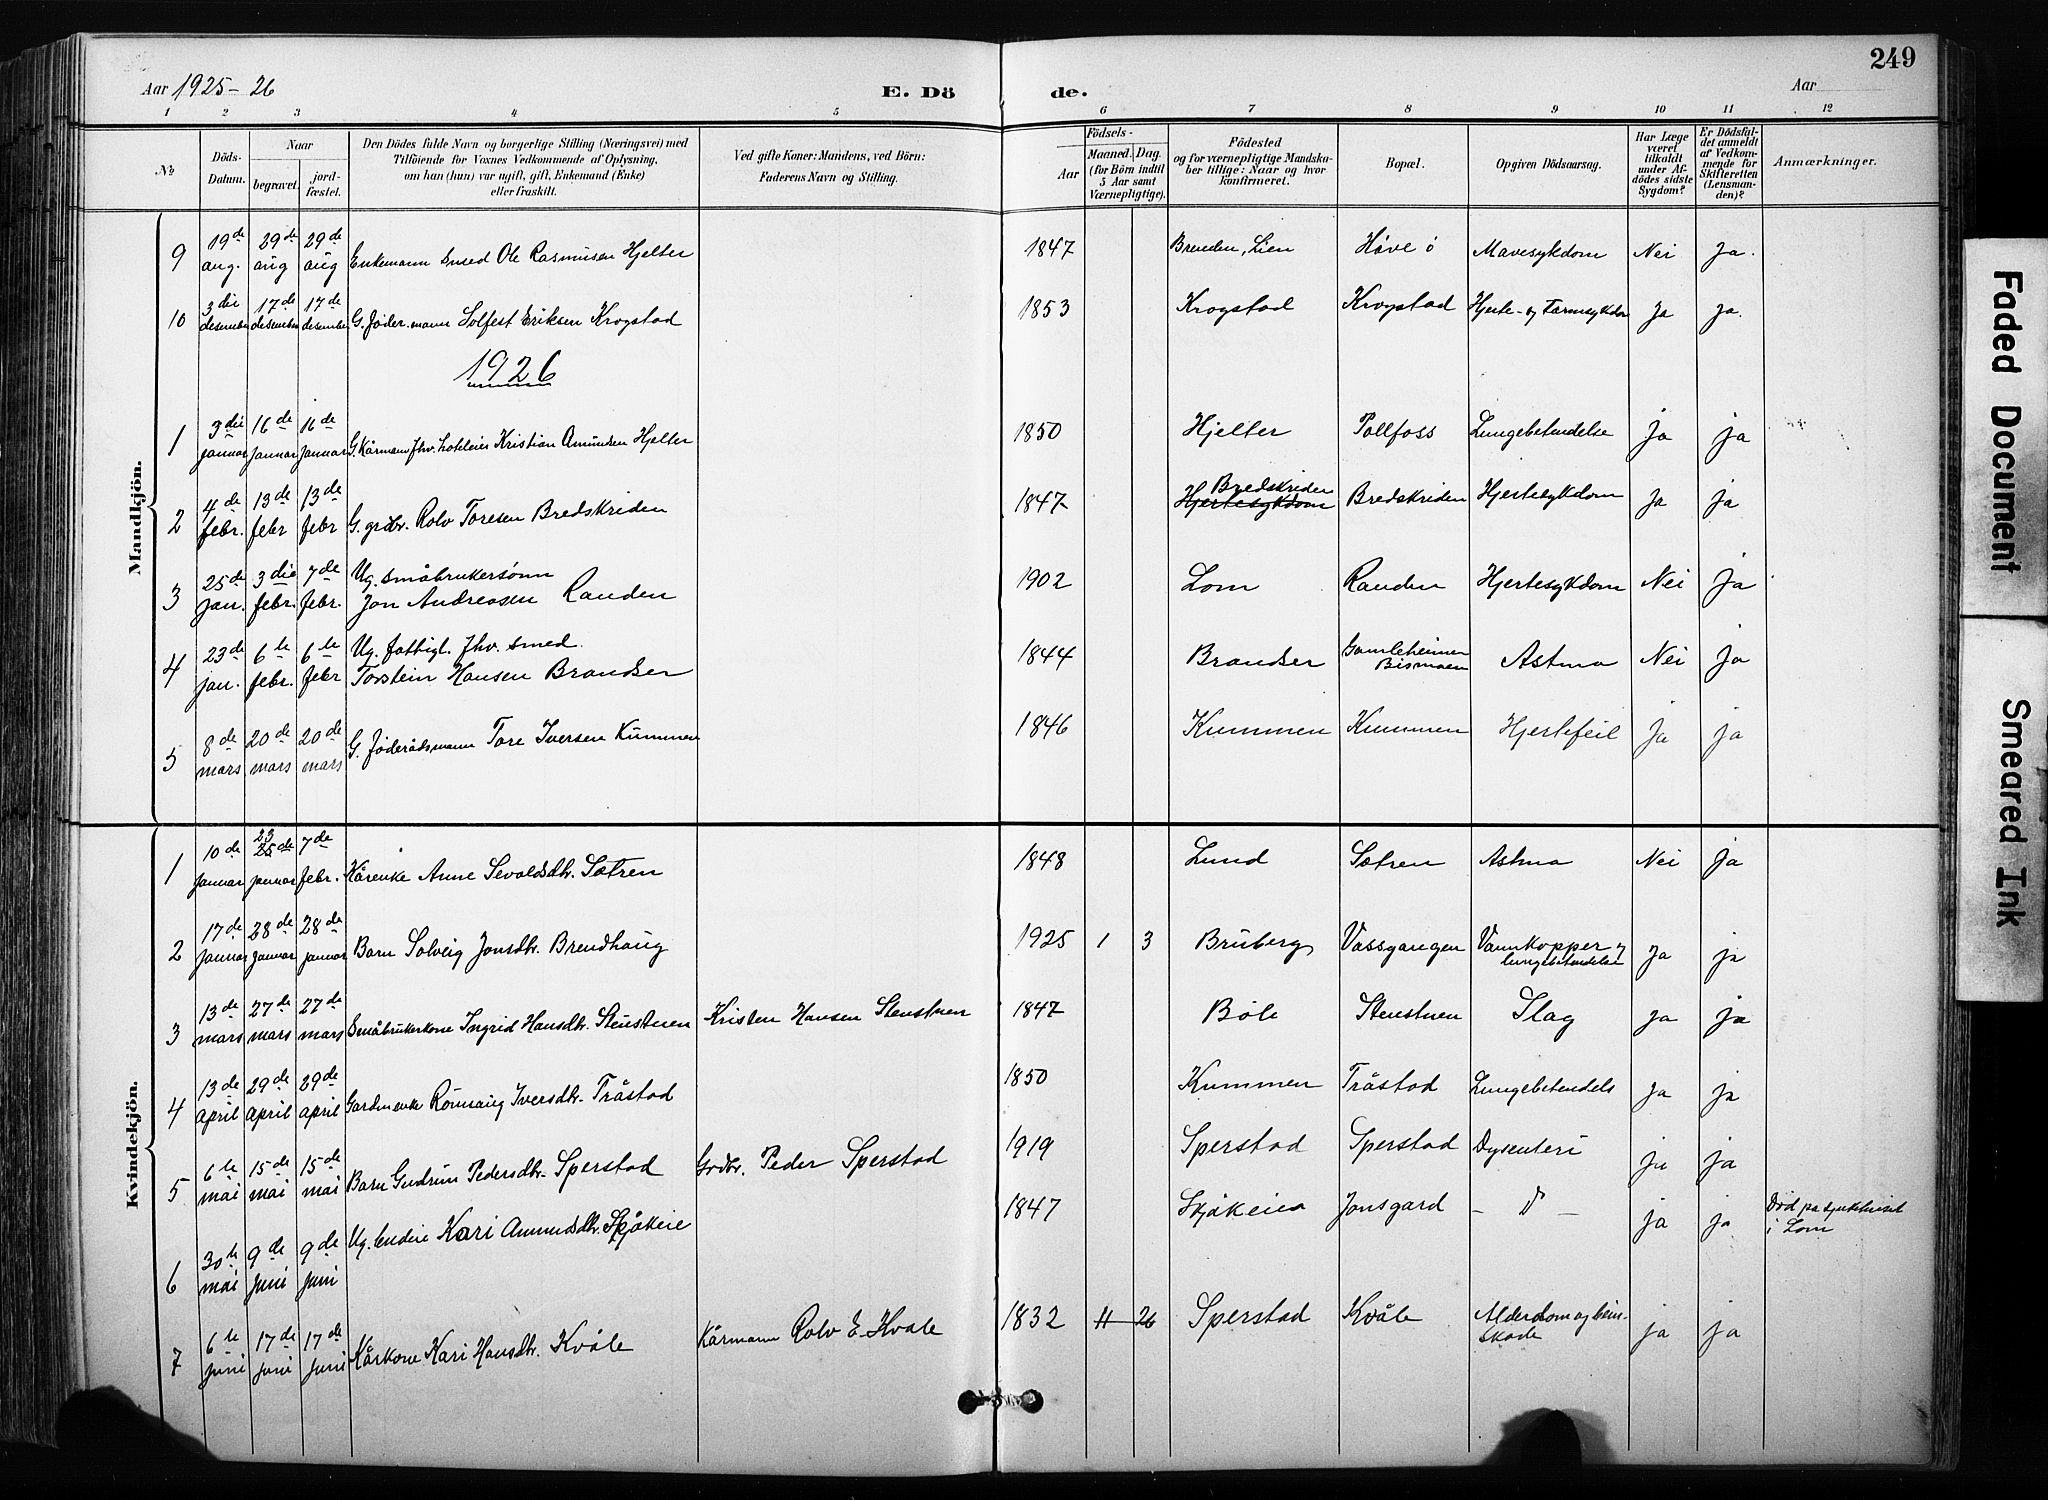 249
Aar 1925-26
E. Dö de.
Aar
1 2 3 4 5 6 7 8 9 10 11 12
№
Döds-Datum.
Naar
begravet.
jord-fæstet.
Den Dödes fulde Navn og borgerlige Stilling (Næringsvei) med
Tilföiende for Voxnes Vedkommende af Oplysning,
om han (hun) var ugift, gift, Enkemand (Enke)
eller fraskilt.
Ved gifte Koner: Mandens, ved Börn:
Faderens Navn og Stilling.
Födsels-
Aar
Maaned. Dag.
(for Börn indtil
5 Aar samt
Værnepligtige).
Födested
og for værnepligtige Mandska-
ber tillige: Naar og hvor
konfirmeret.
Bopæl.
Opgiven Dödsaarsag.
Har Læge
været
tilkaldt
under Af-
dödes sidste
Sygdom?
Er Dödsfal-
det anmeldt
af Vedkom-
mende for
Skifteretten
(Lensman-
den)?
Anmærkninger.
Mandkjön.
9 19de aug. 29de aug 29de aug Enkemann smed Ole Rasmusen Hjelter 1847 Brenden, Lien Håve ö Mavesykdom Nei Ja.
10 3die desember 17de desember 17de desember G. föder.mann Solfest Eriksen Krogstad 1853 Krogstad Krogstad Hjerte- og Tarmsykdom Ja Ja.
1926
1 3die januar 16de januar 16de januar G. Kårmann fhv. hoteleier Kristian Amundsen Hjelter 1850 Hjelter Pollfoss Lungebetendelse Ja ja
2 4de febr. 13de febr 13de febr G. grdbr. Rolv Toresen Bredskriden 1847 Hjertesykdom Bredskriden Bredskriden Hjertesykdom Ja ja
3 25de jan. 3die febr. 7de febr. Ug. småbrukersønn
Jon Andreasen Randen 1902 Lom Randen Hjertesykdom Nei Ja
4 23de jan. 6te febr. 6te febr Ug. fattigl. fhv. smed.
Torstein Hansen Brandser 1844 Brandser Gamleheimen Bismoen Astma Nei Ja
5 8de mars 20de mars 20de mars G. föderådsmann Tore Iversen Kummen 1846 Kummen Kummen Hjertefeil Ja ja
Kvindekjön.
1 10de januar 23 25de januar 7de febr. Kårenke Anne Sevaldsdtr. Sætren 1848 Lund Sætren Astma Nei Ja
2 17de januar 28de januar 28de januar Barn Solveig Jonsdtr. Brendhaug 1925 1 3 Bruberg Vassgangen Vannkopper og lungebetendelse Ja ja
3 13de mars 27de mars 27de mars Småbrukerkone Ingrid Hansdtr. Stenstuen Kristen Hansen Stenstuen 1847 Böle Stenstuen Slag Ja ja
4 13de april 29de april 29de april Gardmenke Rönnaug Iversdtr. Tråstad 1850 Kummen Tråstad Lungebetendels Ja ja
5 6te mai 15de mai 15de mai Barn Gudrun Pedersdtr. Sperstad Grdbr. Peder Sperstad 1919 Sperstad Sperstad Dysenteri ja ja
6 30te mai 9de juni 9de juni Ug. Kari Amundsdtr. Skjåkeie 1847 Skjåkeien Jonsgard ja ja Död på sjukhuset i Lom
7 6te juni 17de juni 17de juni Kårkone Kari Hansdtr. Kvåle Kårmann Rolv E. Kvale 1832 11 26 Sperstad Kvåle Alderdom og bein-skade ja ja
Faded Document
Smeared Ink